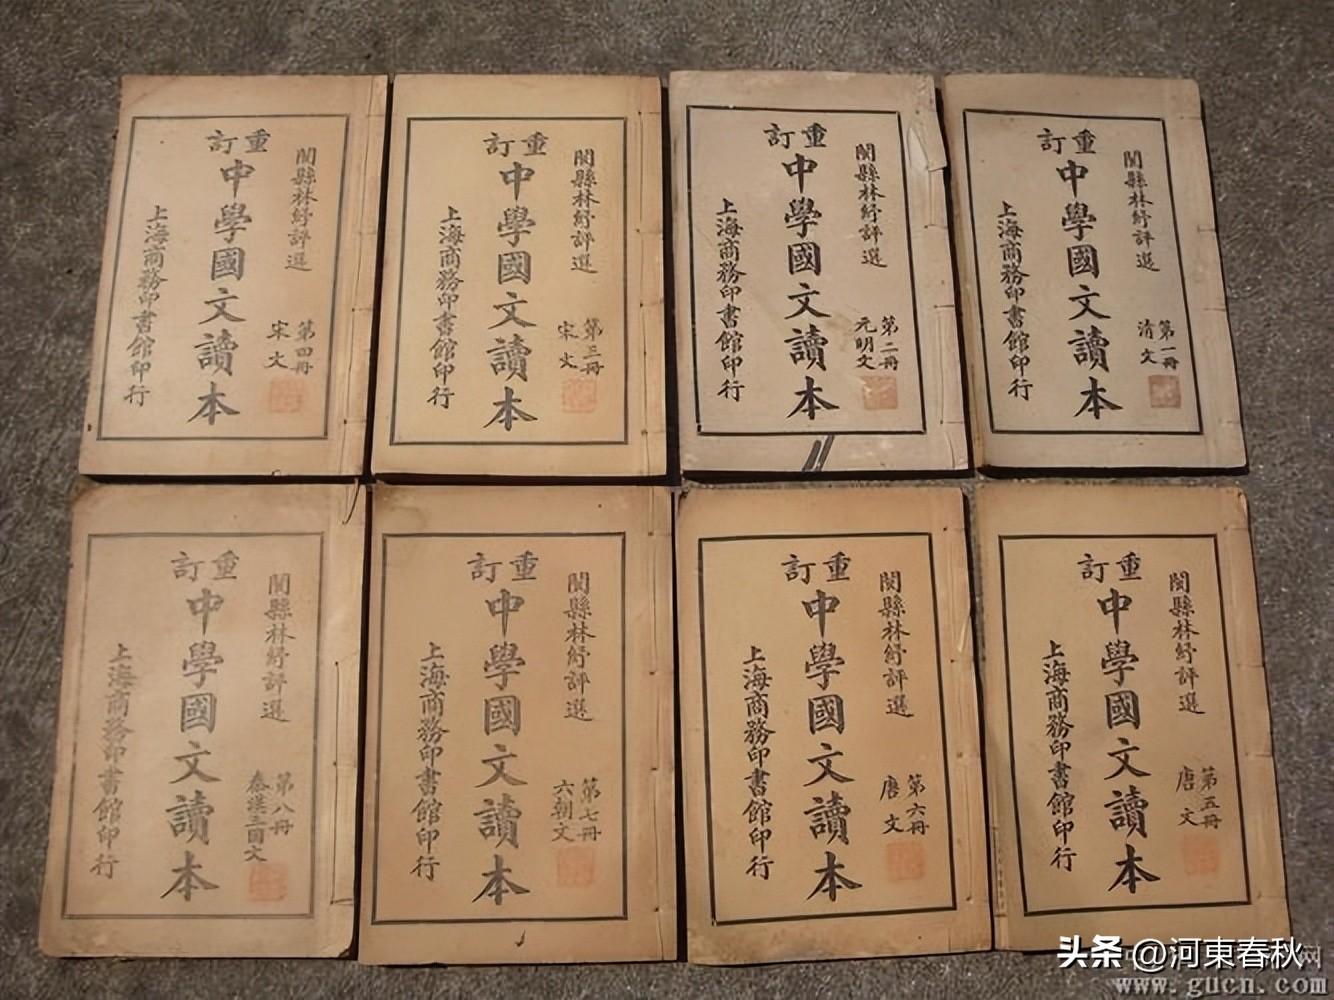 重訂
閩縣林紓評選
中學國文讀本
第一冊
清文
上海商務印書館印行
重訂
閩縣林紓評選
中學國文讀本
第二冊
元明文
上海商務印書館印行
重訂
閩縣林紓評選
中學國文讀本
第三冊
宋文
上海商務印書館印行
重訂
閩縣林紓評選
中學國文讀本
第四冊
宋文
上海商務印書館印行
重訂
閩縣林紓評選
中學國文讀本
第五冊
唐文
上海商務印書館印行
重訂
閩縣林紓評選
中學國文讀本
第六冊
唐文
上海商務印書館印行
重訂
閩縣林紓評選
中學國文讀本
第七冊
六朝文
上海商務印書館印行
重訂
閩縣林紓評選
中學國文讀本
第八冊
秦漢三國文
上海商務印書館印行
头条 @河東春秋
www.gucn.com